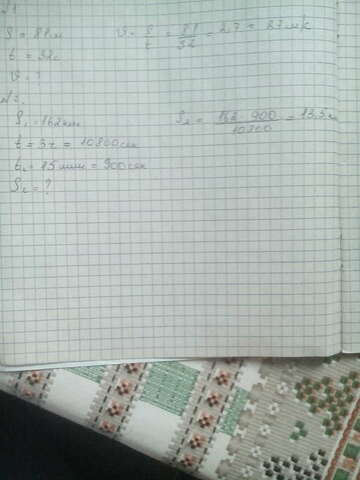 S = 81 м
t = 32 с
v = ?
v = S / t = 81 / 32 = 2,7 = 27 м/с
№2.
S₁ = 162 км
t = 3 ч = 10800 сек
t₂ = 15 мин = 900 сек
S₂ = ?
S₂ = 162 · 900 / 10800 = 13,5 км